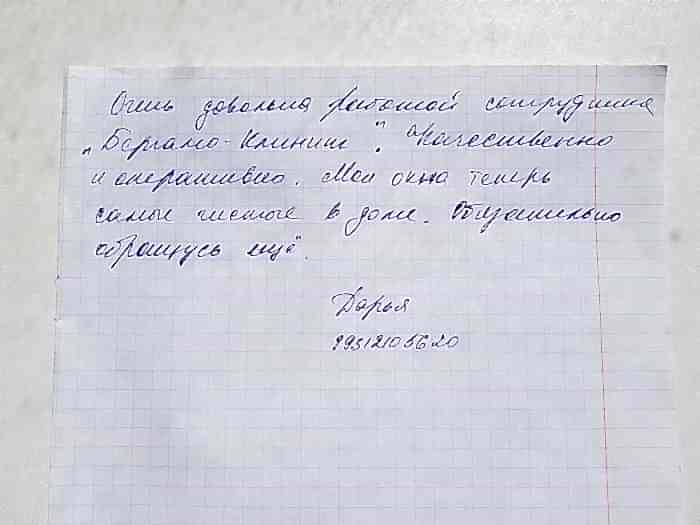 Очень довольна работой сотрудника
„Бергамо-Клининг". Качественно
и оперативно. Мои окна теперь
самые чистые в доме. Обязательно
обращусь ещё.
Дарья
89312105620